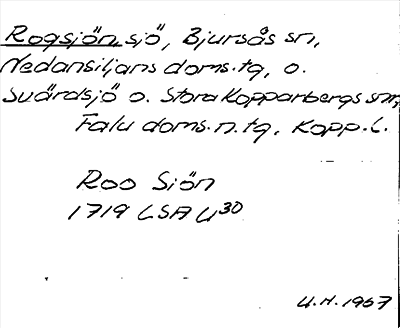 Rogsjön sjö, Bjursås sn,
Nedansiljans doms.tg, o.
Svärdsjö o. Stora Kopparbergs snr,
Falu doms.n.tg, Kopp.l.
Roo Siön
1719 LSA U30
U.H. 1967